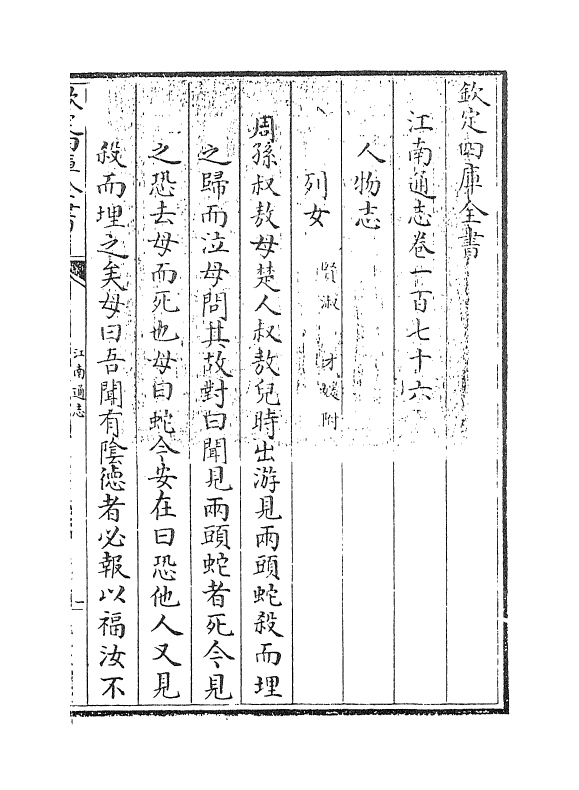 欽定四庫全書
江南通志卷一百七十六
人物志
列女 賢淑 才媛附
周孫叔敖母楚人叔敖兒時出游見兩頭蛇殺而埋
之歸而泣母問其故對曰聞見兩頭蛇者死今見
之恐去母而死也母曰蛇今安在曰恐他人又見
殺而埋之矣母曰吾聞有陰德者必報以福汝不
欽定四庫全書
江南通志
一